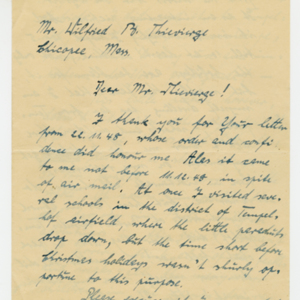 Mr. Wilfried B. Thievierge
Chicopee, Mass
Dear Mr. Thievierge!
I thank you for Your letter
from 22.11.48, whose order and confi
dence did honour me Ales it came
to me not before 11.12.48, in spite
of air mail! At one I visited seve
ral schools in the district of Tempel
hof airfield, where the little parachutes
drop down, but the time short before
Christmas holidays wasn't shurly opp
portune to this purpose.